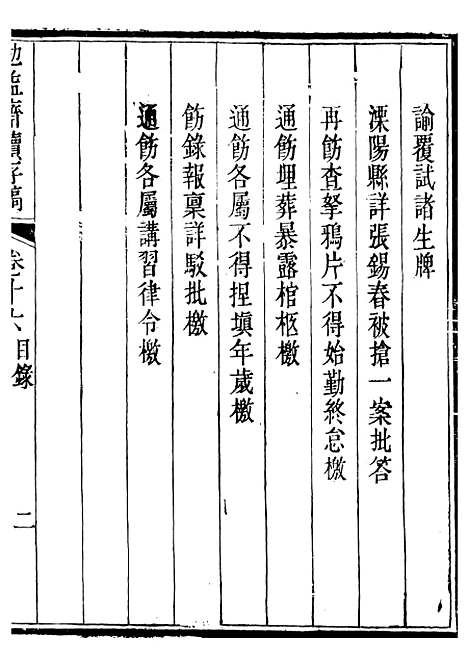 諭覆試諸生牌
溧陽縣詳張錫春被搶一案批答
再飭查拏鴉片不得始勤終怠檄
通飭埋葬暴露棺柩檄
通飭各屬不得捏填年歲檄
飭錄報稟詳駁批檄
通飭各屬講習律令檄
勉益齋續存稿
卷十六 目錄
二